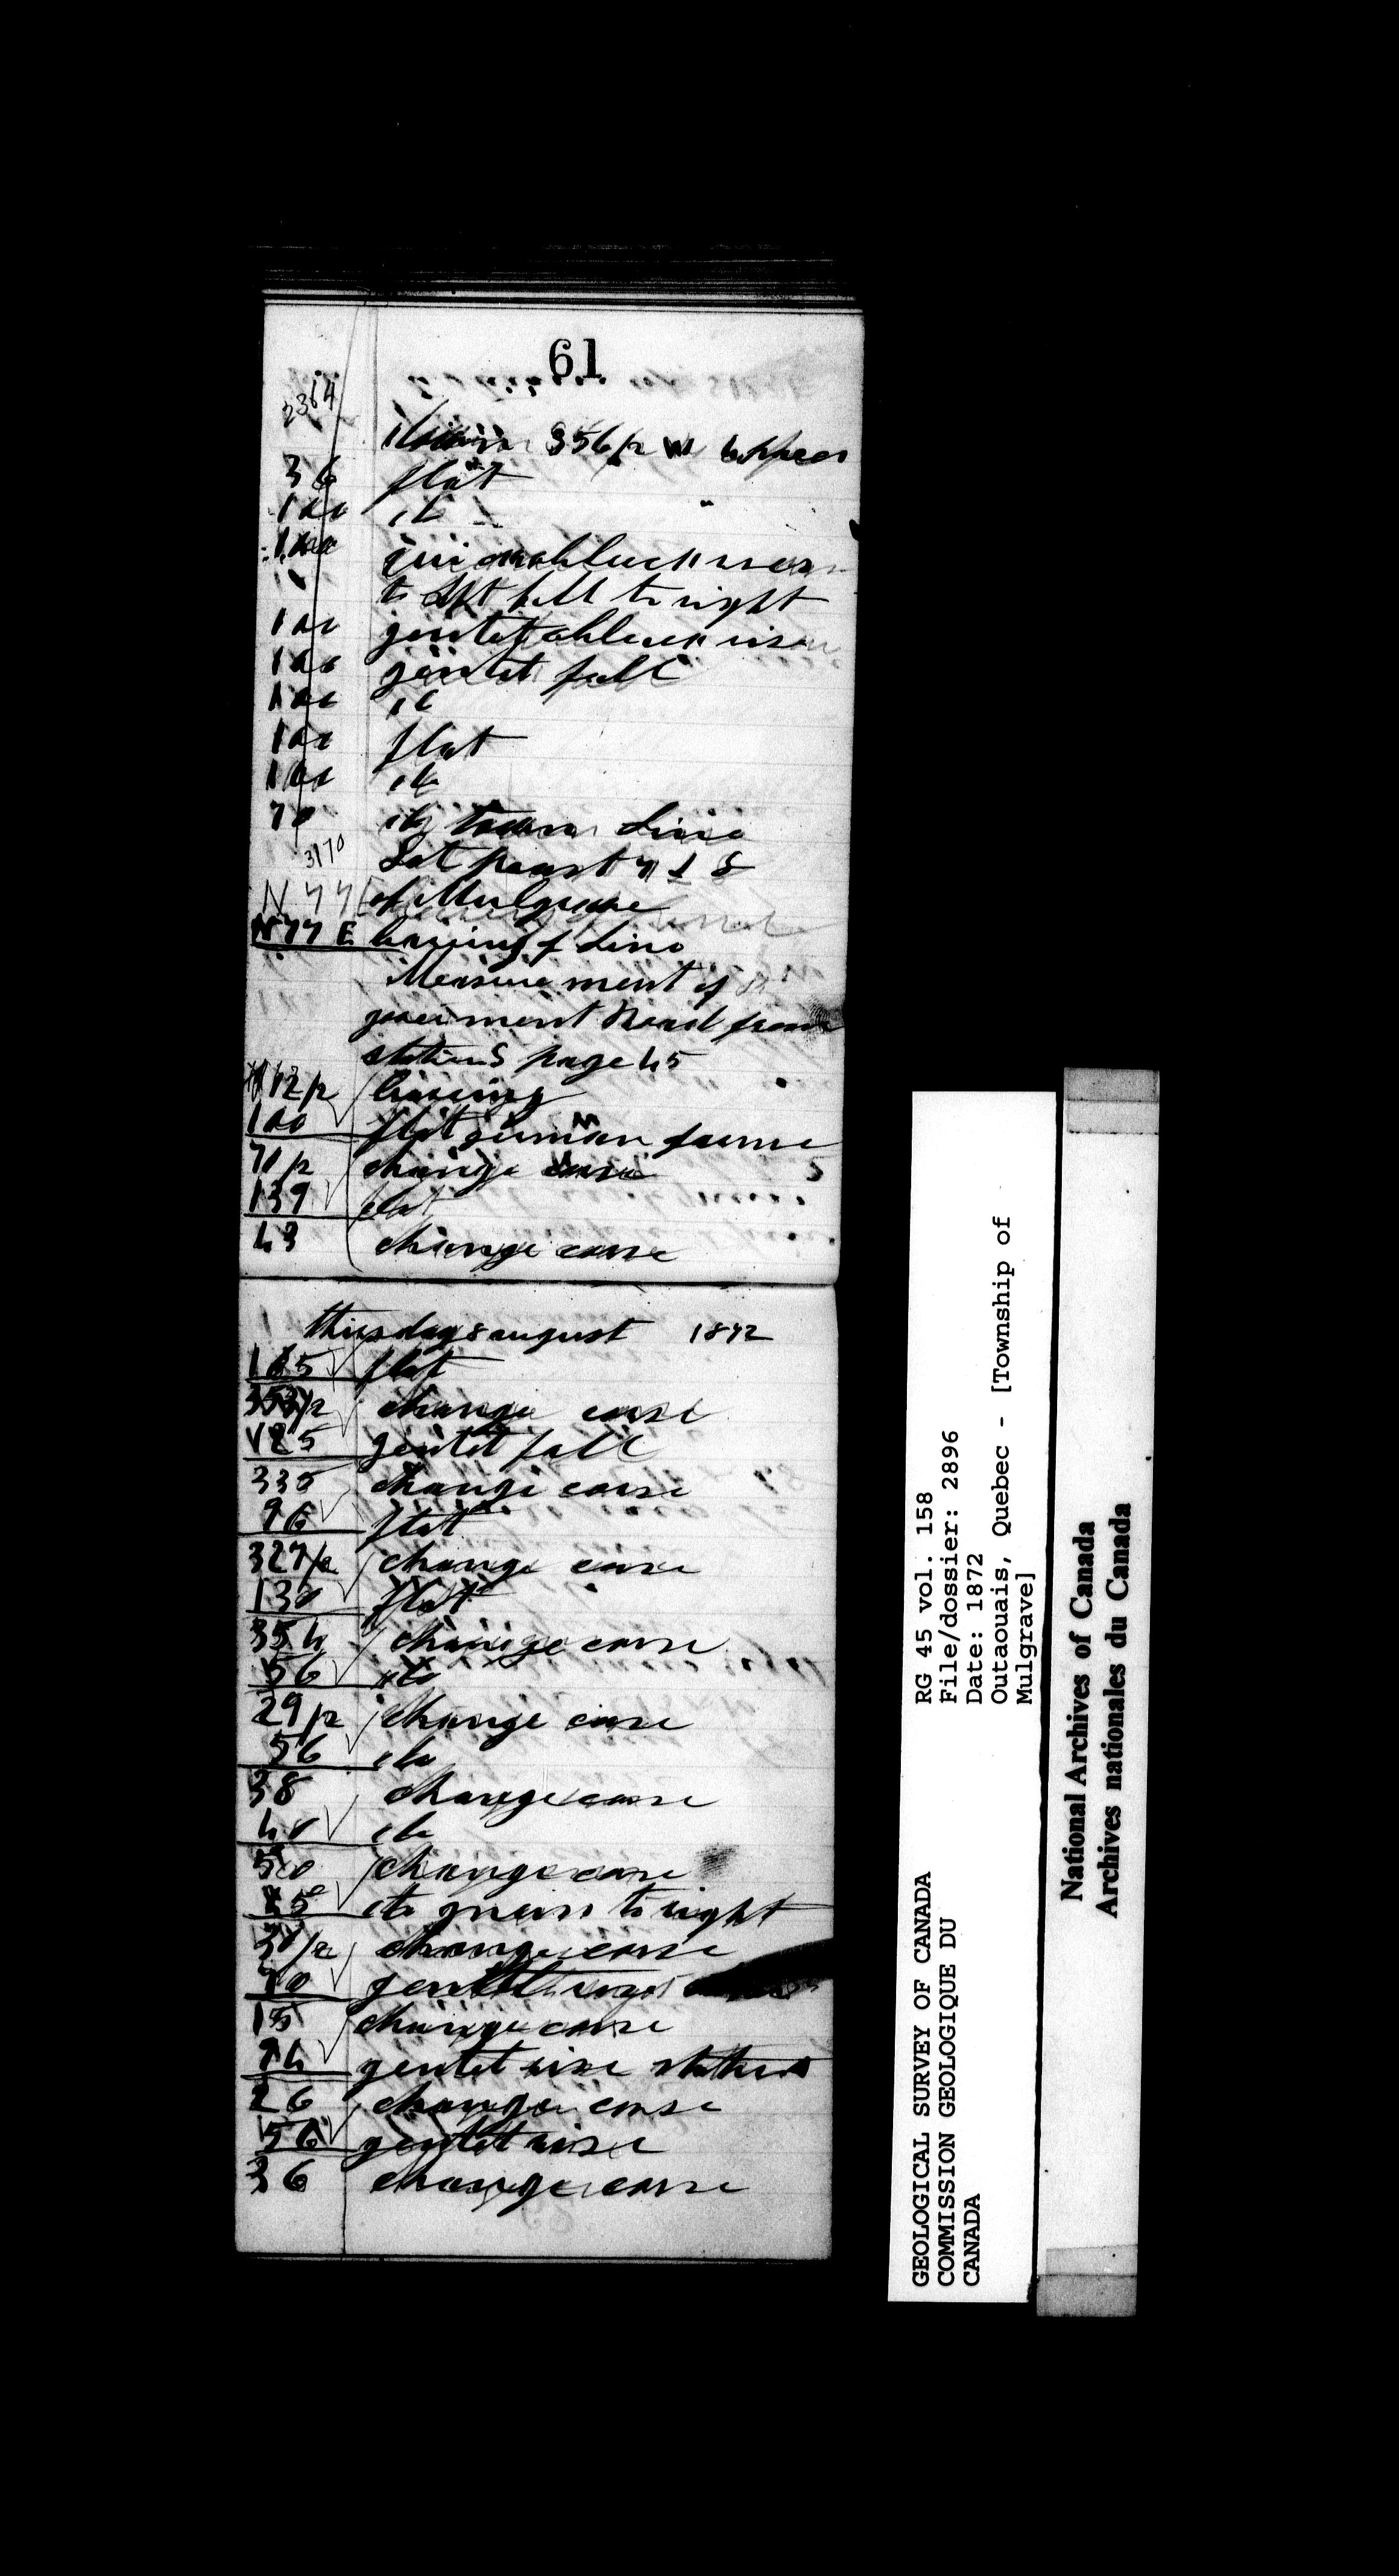 61
2364
356/2 W
36 flat
100 do
100
to left fall to right
100 gentel rise
100 gentel fall
100 do
100 flat
100 do
70 do town Line
3170 Lot
N 77 E of Mulgrave
N 77 E bearing of Line
Measurement of
government Road from
station S page 45
12/2 bearing
100 flat german farme
71/2 change corse
139 flat
43 change corse
thursday 8 august 1872
105 flat
change corse
125 gentel fall
330 change corse
96 flat
327/2 change corse
130 flat
354 change corse
56 do
29/2 change corse
56 do
38 change corse
40 do
50 change corse
do to right
change corse
70 gentel
15 change corse
94 gentel rise
26 change corse
56 gentel rise
36 change corse
GEOLOGICAL SURVEY OF CANADA
COMMISSION GEOLOGIQUE DU
CANADA
RG 45 vol. 158
File/dossier: 2896
Date: 1872
Outaouais, Quebec - [Township of
Mulgrave]
National Archives of Canada
Archives nationales du Canada